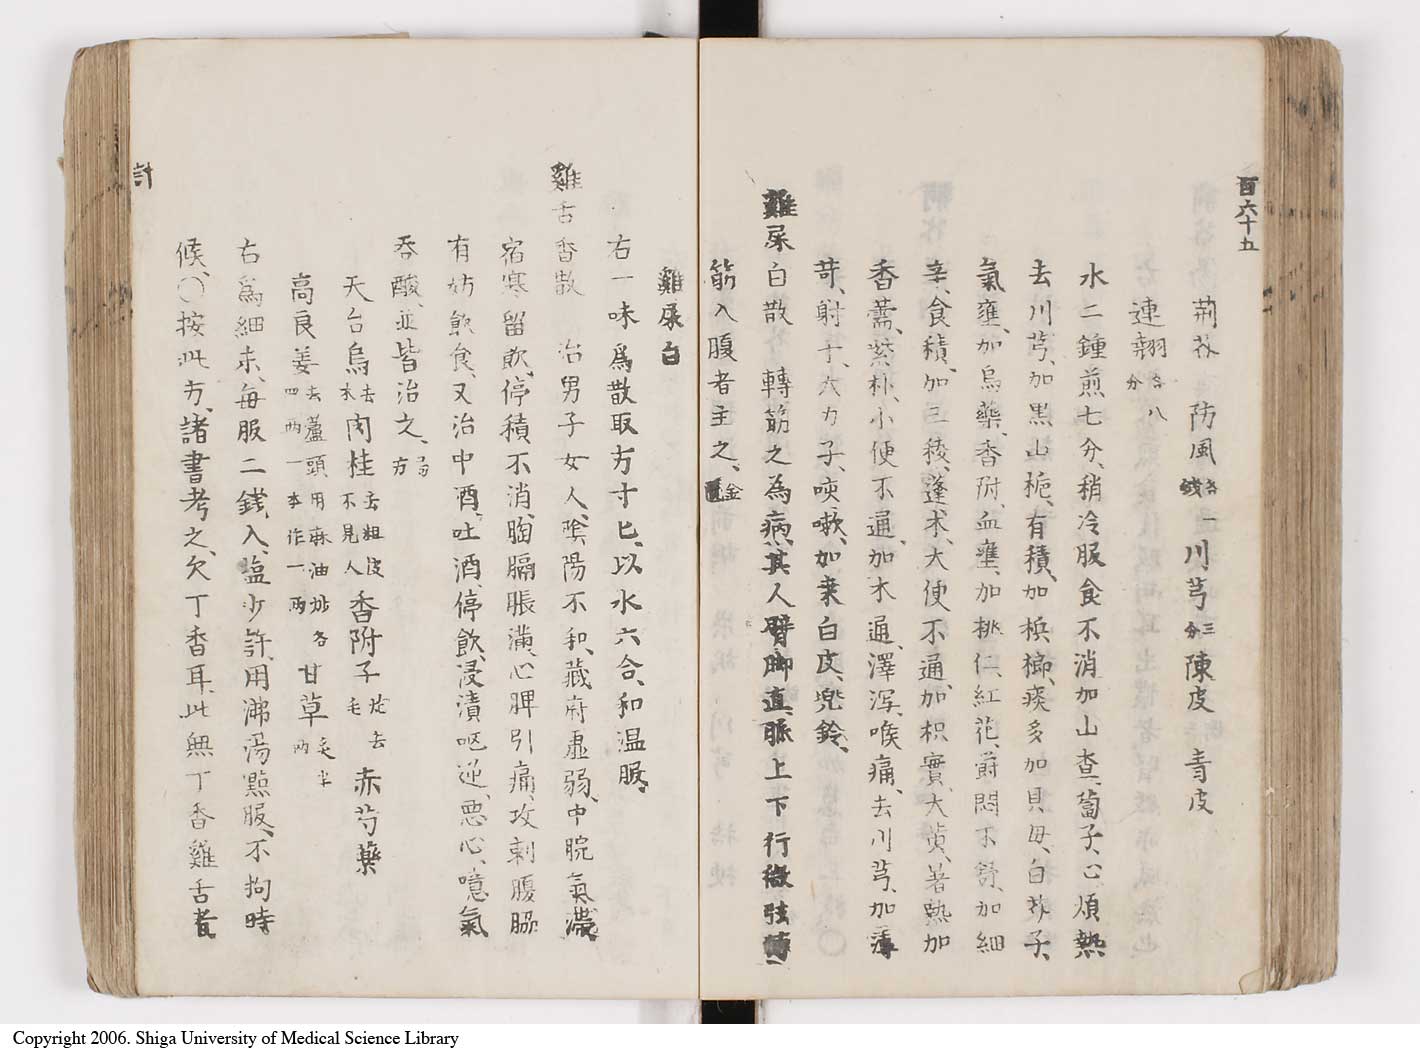 百六十五
荊芥 防風各一錢 川芎三分 陳皮 青皮
連翹各八分
水二鍾煎七分、稍冷服食不消加山查、蔔子、心煩熱
去川芎、加黒山梔、有積、加梹榔、痰多加貝母、白芥子、
氣壅、加烏藥、香附、血壅、加桃仁、紅花、欝悶不舒、加細
辛、食積、加三稜、蓬朮、大便不通、加枳實、大黄、暑熱加
香薷、紫朴、小便不通、加木通、澤瀉、喉痛、去川芎、加薄
荷、射干、大力子、咳嗽、加桑白皮、兜鈴、
雞屎白散 轉筋之為病、其人臂脚直、脈上下行微弦轉
筋入腹者主之、金匱
雞屎白
右一味為散取方寸匕、以水六合、和温服、
雞舌香散 治男子女人、陰陽不和、藏府虚弱、中脘氣滯、
宿寒留飲、停積不消、胸膈脹滿、心脾引痛、攻刺腹脇
有妨飲食、又治中酒、吐酒、停飲、浸漬嘔逆、悪心、噫氣
呑酸、並皆治之、局方
天台烏去木 肉桂去粗皮不見人 香附子炒去毛 赤芍藥
高良姜去蘆頭用麻油炒各四両一本作一両 甘草炙半両
右為細末、毎服二銭、入塩少許、用沸湯點服、不拘時
候、〇按此方、諸書考之、欠丁香耳、此無丁香雞舌者
計